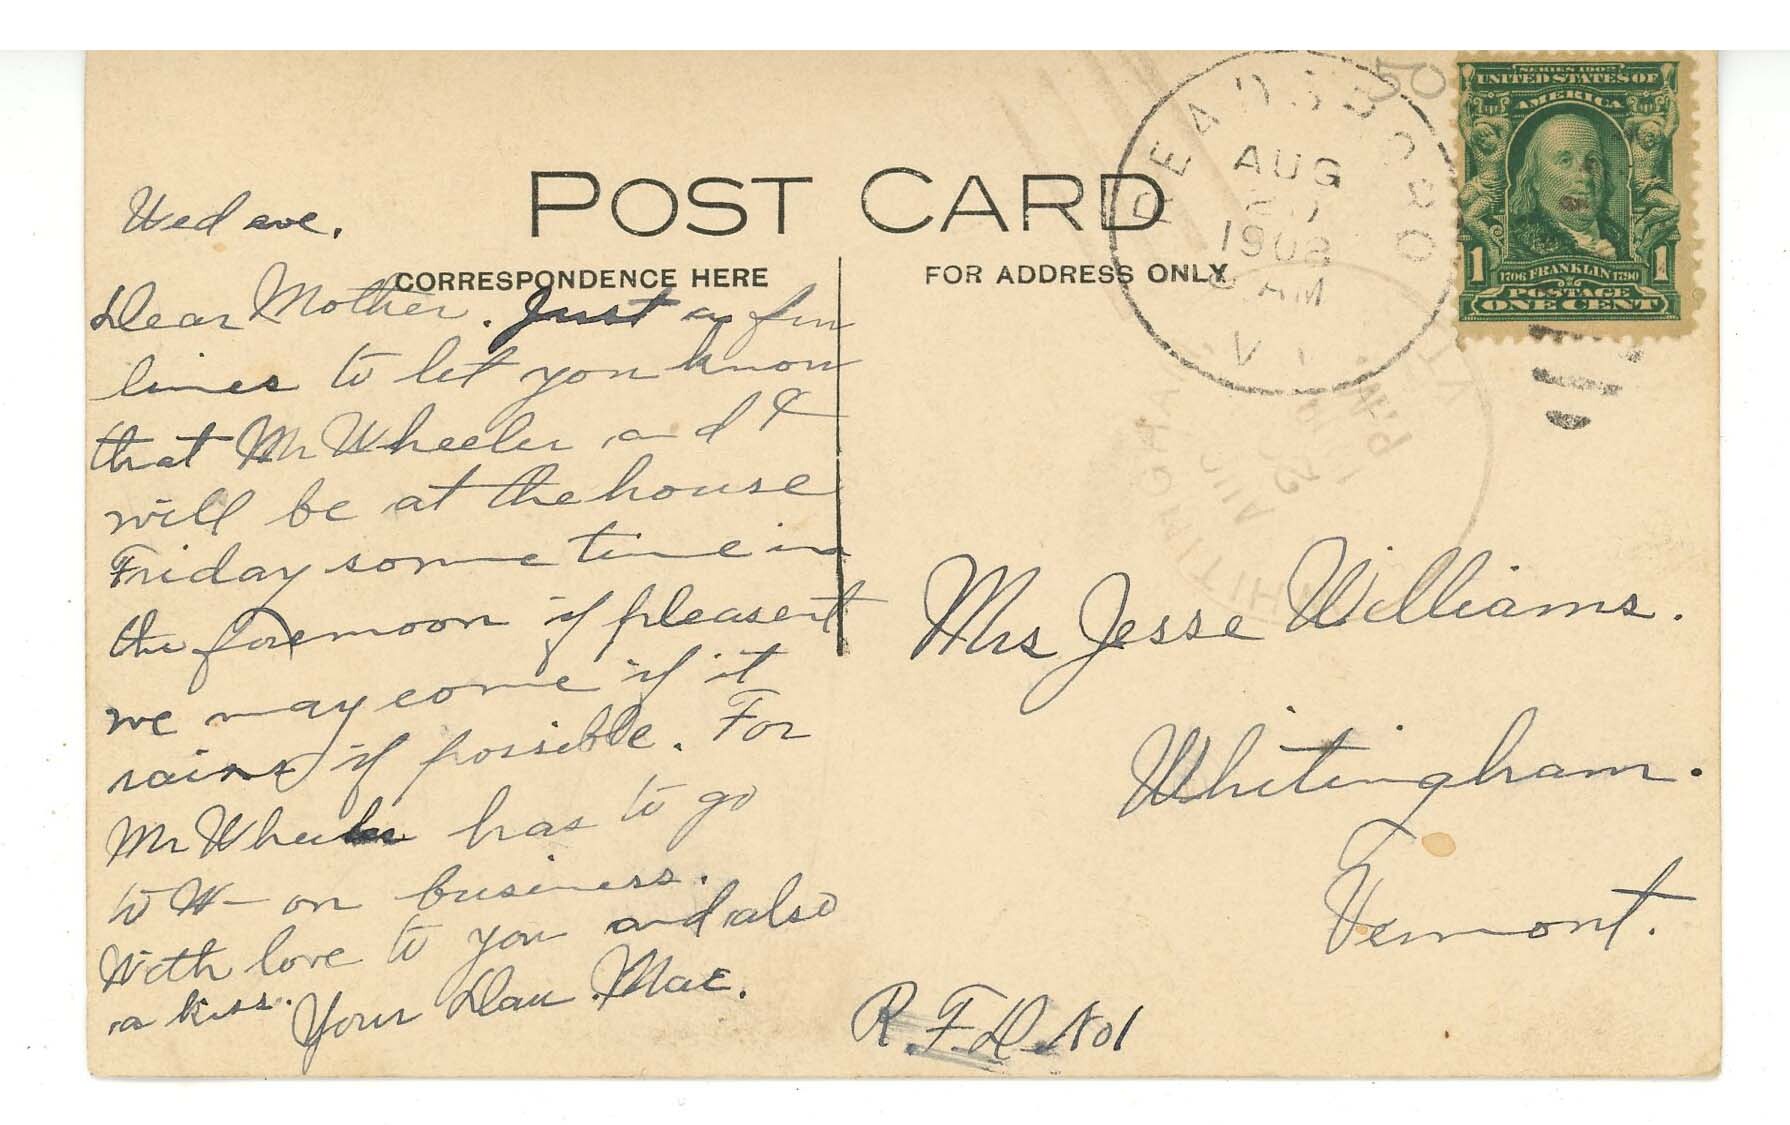 POST CARD
CORRESPONDENCE HERE
FOR ADDRESS ONLY
Wed eve.
Dear Mother. Just a few
lines to let you know
that Mr Wheeler and I
will be at the house
Friday some time in
the forenoon if pleasent
we may come if it
rains if possible. For
Mr Wheeler has to go
to W— on business.
With love to you and also
a kiss. Your Dau. Mae.
Mrs Jesse Williams.
Whitingham.
Vermont.
R.F.D. No 1
READSBORO
AUG
20
1908
AM
VT
WHITINGHAM
VT.
AUG
PM
SERIES 1902
UNITED STATES OF
AMERICA
1 1
1706 FRANKLIN 1790
POSTAGE
ONE CENT